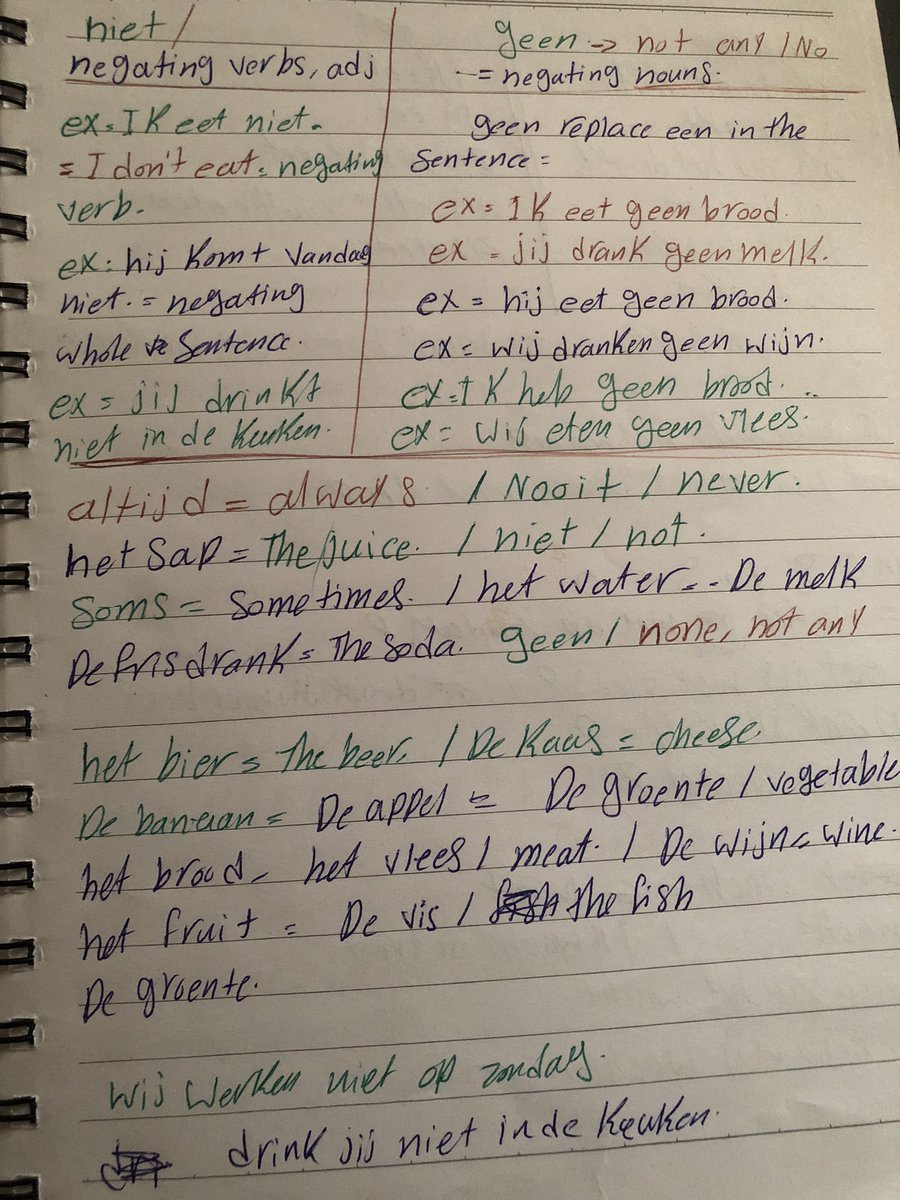 niet /
negating verbs, adj
ex = Ik eet niet.
= I don't eat = negating
verb.
ex: hij komt vandag
niet. = negating
whole Sentence.
ex = jij drinkt
niet in de keuken.
geen -> not any / No
-= negating nouns.
geen replace een in the
Sentence =
ex = Ik eet geen brood.
ex = jij drank geen melk.
ex = hij eet geen brood.
ex = wij dranken geen wijn.
ex = Ik heb geen brood.
ex = wij eten geen vlees.
altijd = always. / Nooit / never.
het Sap = The Juice. / niet / not.
Soms = Sometimes. / het water -- De melk
De frisdrank = The Soda. geen / none, not any
het bier = The beer. / De Kaas = cheese.
De banaan = De appel = De groente / vegetable
het brood - het vlees / meat. / De wijn = wine.
het fruit = De vis / the fish
De groente.
wij werken niet op zondag.
drink jij niet in de keuken.